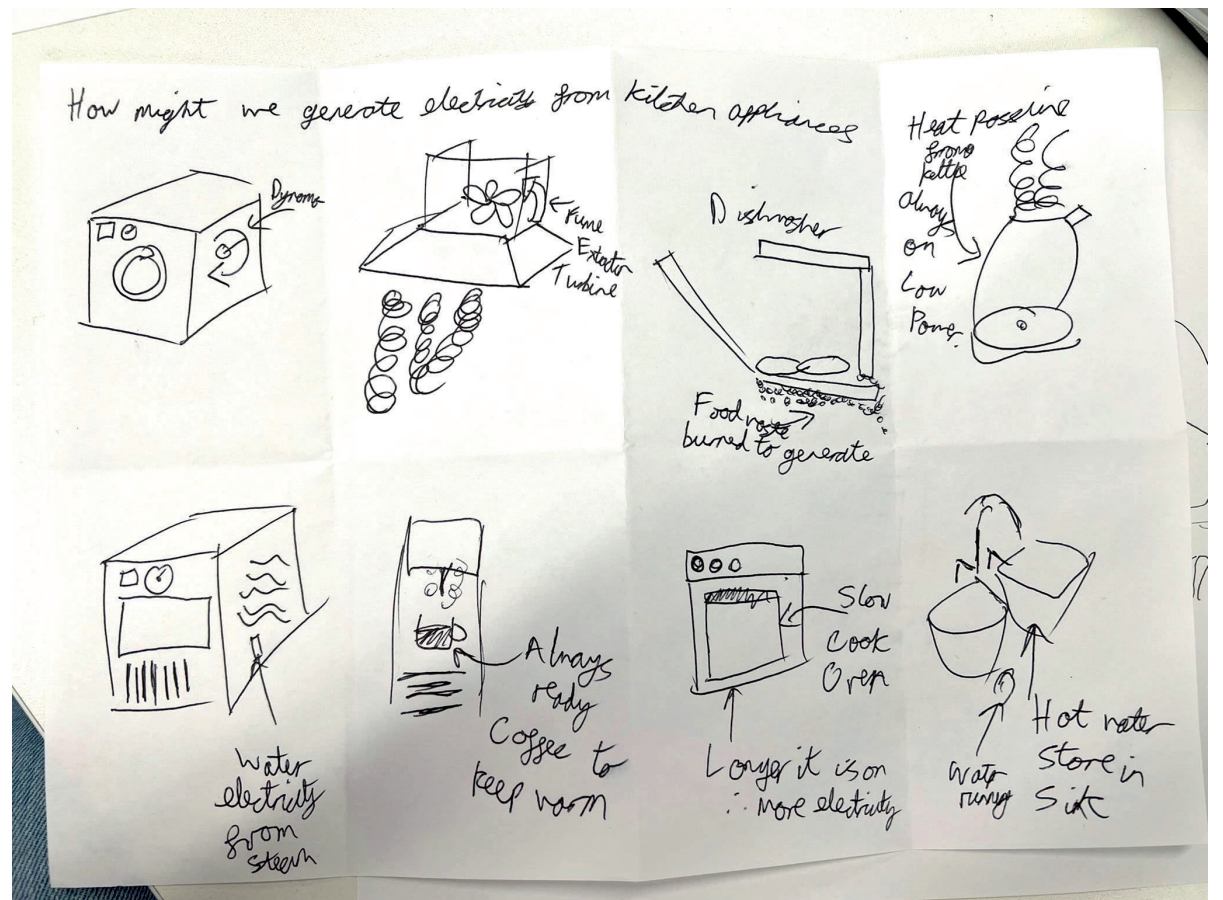 How might we generate electricity from kitchen appliances
Dynamo
Fume
Extractor
Turbine
Dishwasher
Food waste
burned to generate
Heat
from
kettle
always
on
Low
Power.
Water
electricity
from
steam
Always
ready
Coffee to
keep warm
Slow
Cook
Oven
Longer it is on
∴ More electricity
water
running
Hot water
Store in
Sink